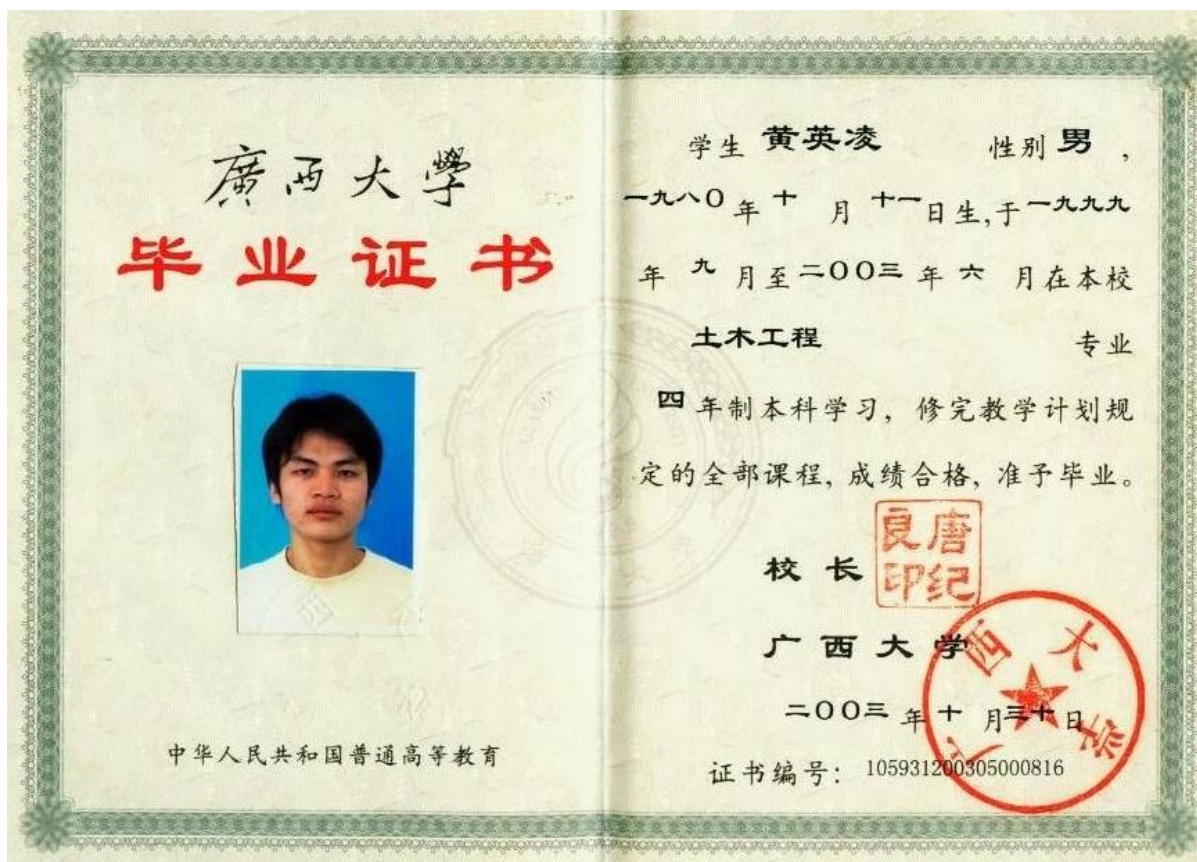 廣西大學
毕业证书
中华人民共和国普通高等教育
学生 黄英凌 性别 男 ,
一九八〇 年 十 月 十一 日生,于 一九九九
年 九 月至 二〇〇三 年 六 月在本校
土木工程 专业
四 年制本科学习, 修完教学计划规
定的全部课程, 成绩合格, 准予毕业。
校长
唐纪良印
广西大学
广西大学
二〇〇三 年 十 月 三十 日
证书编号: 105931200305000816